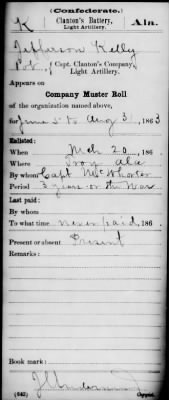 (Confederate.)
K Clanton's Battery, Ala.
Light Artillery.
Jefferson Kelly
Pvt, { Capt. Clanton's Company,
Light Artillery.
Appears on
Company Muster Roll
of the organization named above,
for June 5 to Aug 31, 1863
Enlisted:
When Mch 20, 186 .
Where Troy Ala
By whom Capt McWhorter
Period 3 years or the War
Last paid:
By whom
To what time never paid, 186 .
Present or absent Present
Remarks:
Book mark:
(642) Copyist.